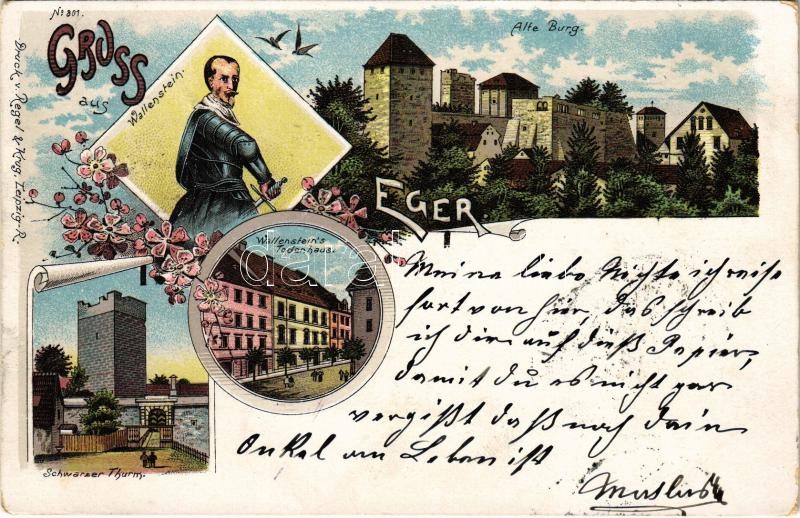 No 301.
Druck v. Regel & Krug, Leipzig-R.
Gruss
aus
Eger.
Wallenstein.
Alte Burg.
Wallenstein's
Todenhaus.
Schwarzer Thurm.
darabanth
Meine liebe Nichte ich reise
fort von hier, das schreib
ich dir auf dieß Papier,
damit du es nicht gar
vergißt daß noch dein
Onkel am Leben ist